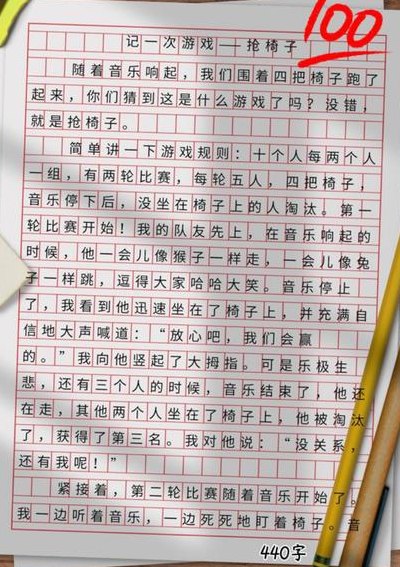 100
记一次游戏——抢椅子
随着音乐响起，我们围着四把椅子跑了
起来，你们猜到这是什么游戏了吗？没错，
就是抢椅子。
简单讲一下游戏规则：十个人每两个人
一组，有两轮比赛，每轮五人，四把椅子，
音乐停下后，没坐在椅子上的人淘汰。第一
轮比赛开始！我的队友先上，在音乐响起的
时候，他一会儿像猴子一样走，一会儿像兔
子一样跳，逗得大家哈哈大笑。音乐停止
了，我看到他迅速坐在了椅子上，并充满自
信地大声喊道：“放心吧，我们会赢
的。”我向他竖起了大拇指。可是乐极生
悲，还有三个人的时候，音乐结束了，他还
在走，其他两个人坐在了椅子上，他被淘汰
了，获得了第三名。我对他说：“没关系，
还有我呢！”
紧接着，第二轮比赛随着音乐开始了。
我一边听着音乐，一边死死地盯着椅子。音
440字